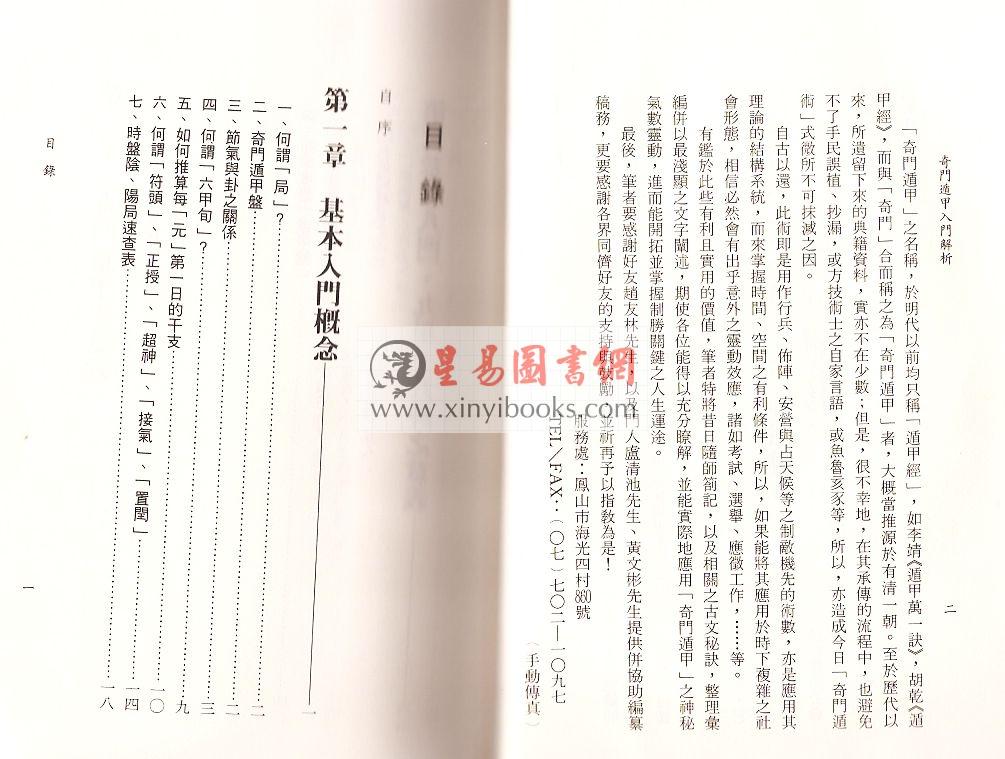 奇門遁甲入門解析
二
「奇門遁甲」之名稱，於明代以前均只稱「遁甲經」，如李靖《遁甲萬一訣》，胡乾《遁
甲經》，而與「奇門」合而稱之為「奇門遁甲」者，大概當推源於有清一朝。至於歷代以
來，所遺留下來的典籍資料，實亦不在少數；但是，很不幸地，在其承傳的流程中，也避免
不了手民誤植、抄漏，或方技術士之自家言語，或魚魯亥豕等，所以，亦造成今日「奇門遁
術」式微所不可抹滅之因。
自古以還，此術即是用作行兵、佈陣、安營與占天候等之制敵機先的術數，亦是應用其
理論的結構系統，而來掌握時間、空間之有利條件，所以，如果能將其應用於時下複雜之社
會形態，相信必然會有出乎意外之靈動效應，諸如考試、選舉、應徵工作，……等。
有鑑於此些有利且實用的價值，筆者特將昔日隨師箚記，以及相關之古文秘訣，整理彙
編併以最淺顯之文字闡述，期使各位能得以充分瞭解，並能實際地應用「奇門遁甲」之神秘
氣數靈動，進而能開拓並掌握制勝關鍵之人生運途。
最後，筆者要感謝好友趙友林先生，以及門人盧清池先生、黃文彬先生提供併協助編纂
稿務，更要感謝各界同儕好友的支持與鼓勵，並祈再予以指教為是！
服務處：鳳山市海光四村860號
TEL／FAX：（〇七）七〇二—一〇九七
（手動傳真）
目錄
自序
第一章 基本入門概念 一
一、何謂「局」？ 二
二、奇門遁甲盤 二
三、節氣與卦之關係 二
四、何謂「六甲旬」？ 三
五、如何推算每「元」第一日的干支 九
六、何謂「符頭」、「正授」、「超神」、「接氣」、「置閏」 一〇
七、時盤陰、陽局速查表 一四
一八
目錄
一
星易圖書網
www.xinyibooks.com